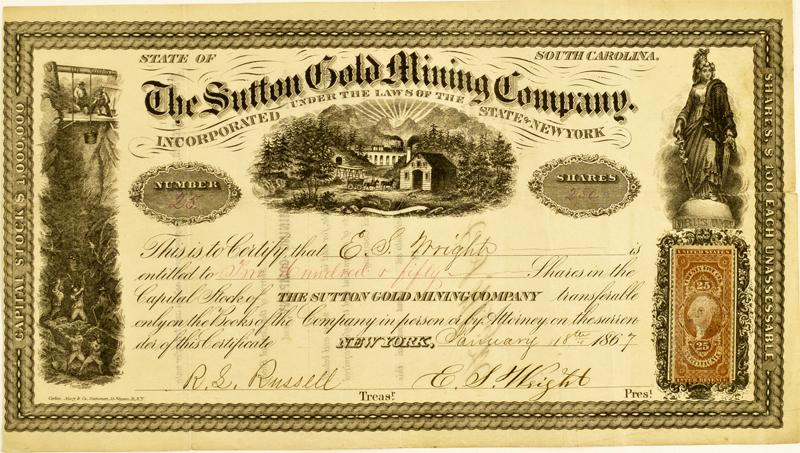 STATE OF SOUTH CAROLINA.
The Sutton Gold Mining Company.
INCORPORATED UNDER THE LAWS OF THE STATE of NEW YORK
CAPITAL STOCK $ 1,000,000
SHARES, $100 EACH, UNASSESSABLE
NUMBER
25
SHARES
250
This is to Certify that E. S. Wright is
entitled to Two Hundred & fifty Shares in the
Capital Stock of THE SUTTON GOLD MINING COMPANY transferable
only on the Books of the Company in person or by Attorney on the surren
der of this Certificate NEW YORK, January 18th 1867
R. L. Russell Treasr. E. S. Wright Prest.
25
25
CERTIFICATE
INTER REVENUE